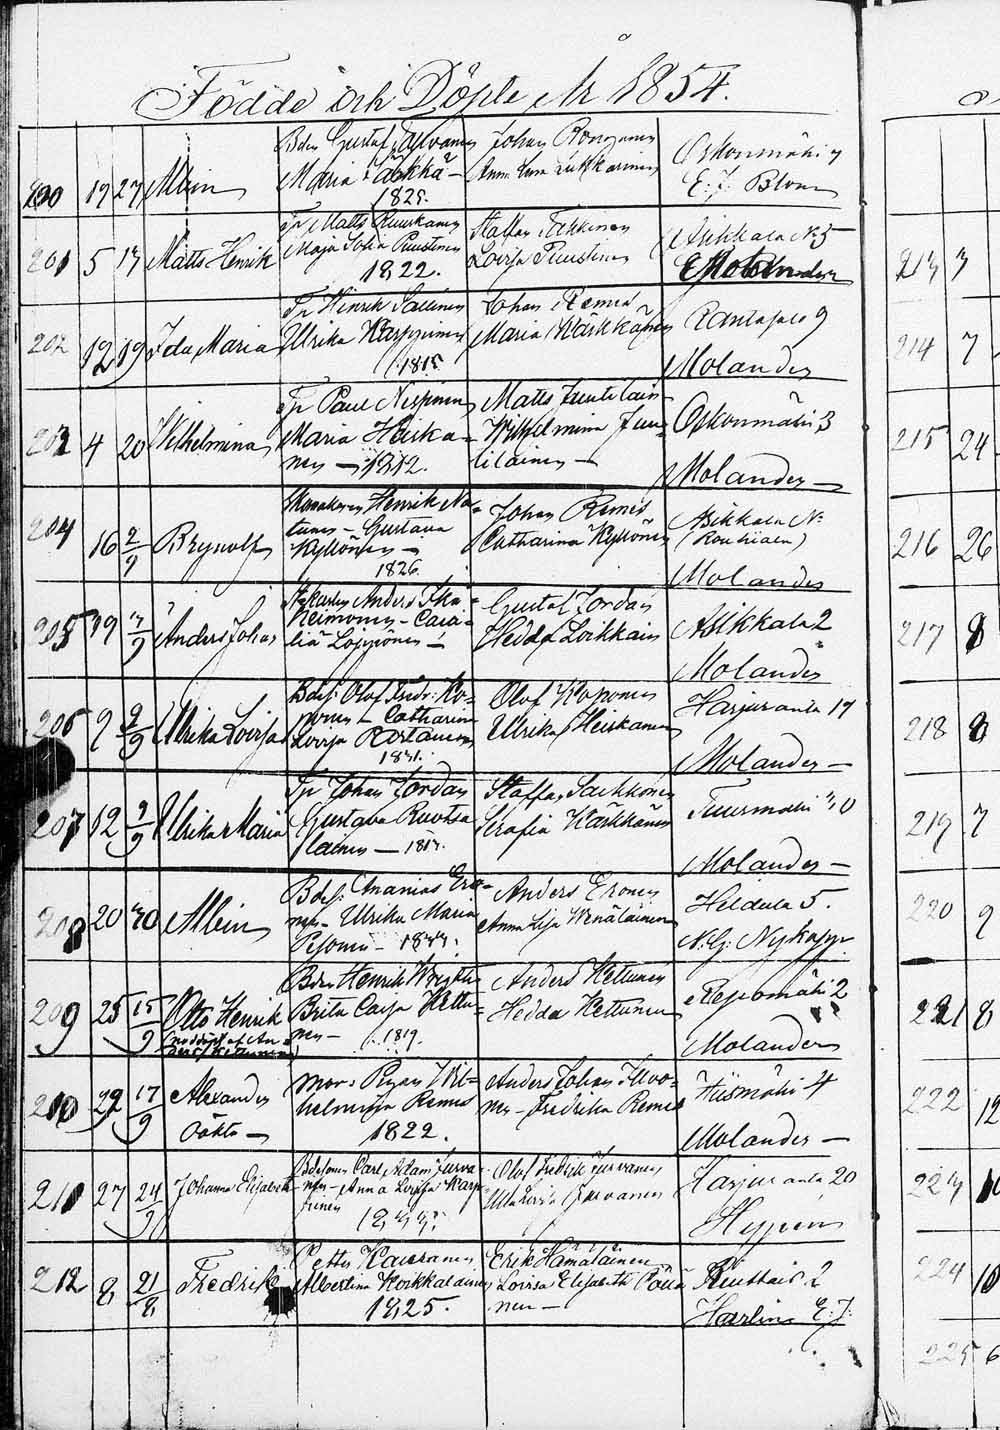 Födde och Döpte År 1854.
200 19 27 Albin
Maria
1825.
Anna Lisa Lukkarinen
E: J: Blom
201 5 17 Matts Henrik
Tp Matts Ruuskanen
Maja Sofia Puustinen
1822.
Staffan
Lovisa Puustinen
Asikkala No 5
Molander
202 12 19 Ida Maria
Tp Hinrik Sallinen
Ulrika Karppinen
1815
Johan Remes
Maria Kärkkäinen
Rantasalo 9
Molander
203 4 20 Wilhelmina
Tp Paul Nissinen
Maria Heiska-
nen — 1812.
Matts Juutilain
Wilhelmina Juu-
tilainen —
Oskonmäki 3
Molander —
204 16 2/9 Brynolf
Henrik No-
tinen – Gustava
Kyllönen —
1826.
Johan Remes
Catharina Kyllönen
Asikkala No
Molander
205 29 Anders Johan
Anders Ika-
heimonen – Caro-
lina Loppönen —
Gustaf Jordan
Hedda Loikkain
Asikkala 2
Molander
206 9 2/9 Ulrika Lovisa
Bdes: Olof Fredr: Ko-
ponen – Catharina
Lovisa Rostainen
1831.
Olof Koponen
Ulrika Heiskanen
Harjuranta 19
Molander —
207 12 2/9 Ulrika Maria
Tp Johan Jordan
Gustava Ruotsa
lainen —
Staffan Sackkonen
Serafia Kärkkäinen
Tuusmäki 10
Molander —
208 20 30 Albin
Bdes: Ananias Ero-
nen – Ulrika Maria
Pesonen –
Anders Eronen
Anna Lisa Wenäläinen
Heldula 5.
N: G: Nykopp
209 25 15/9 Otto Henrik
Bdes Henrik
Brita Caisa Kettu-
nen – 1819.
Anders Kettunen
Hedda Kettunen
Repomäki 2
Molander
210 22 17/9 Alexander
Oäkta —
Mor: Pigan Wil-
helmina Remes
1822.
Anders Johan Ihvo-
nen – Fredrika Remes
Hiismäki 4
Molander —
211 27 24/9 Johanna Elisabeth
Bdesonen Carl Adam Turva-
nen – Anna Lovisa Karp-
pinen
Olof Fredrik Turvanen
Ulla Lovisa Turvanen
Harjuranta 20
Hyppen
212 8 21/8 Fredrik
Petter Kaisranen
Albertina Korkkalainen
1825.
Erik Hämäläinen
Lovisa Elisabeth
nen —
2
Harlin E: J:
213 3
214 7
215 24
216 26
217 8
218 8
219 7
220 9
221 8
222 12
223 10
224 10
225 6